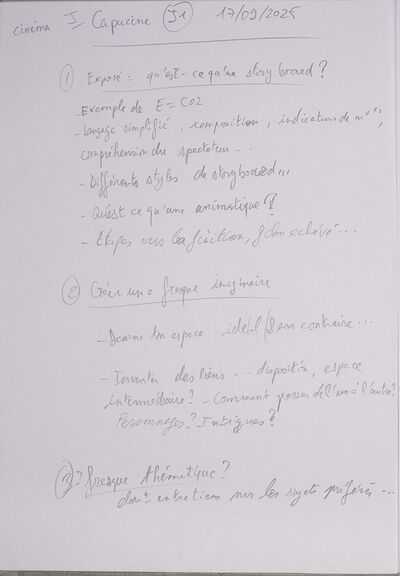 cinéma I Capucine J1 17/09/2025
① Exposé : qu'est-ce qu'un story board ?
- Exemple de E = CO2
- langage simplifié, composition, indications de mvts,
compréhension du spectateur - - -
- Différents styles de storyboard...
- Qu'est ce qu'une animatique ?
- Etapes vers la fiction, film achévé...
② Créer une fresque imaginaire
- Donne ton espace idéal / Sans contrainte...
- Inventer des liens --- disposition, espace
intermédiaire ? - Comment passer de l'un à l'autre ?
Personnages ? Intrigues ?
③ = fresque thématique ?
dont entretien sur les sujets préférés ---